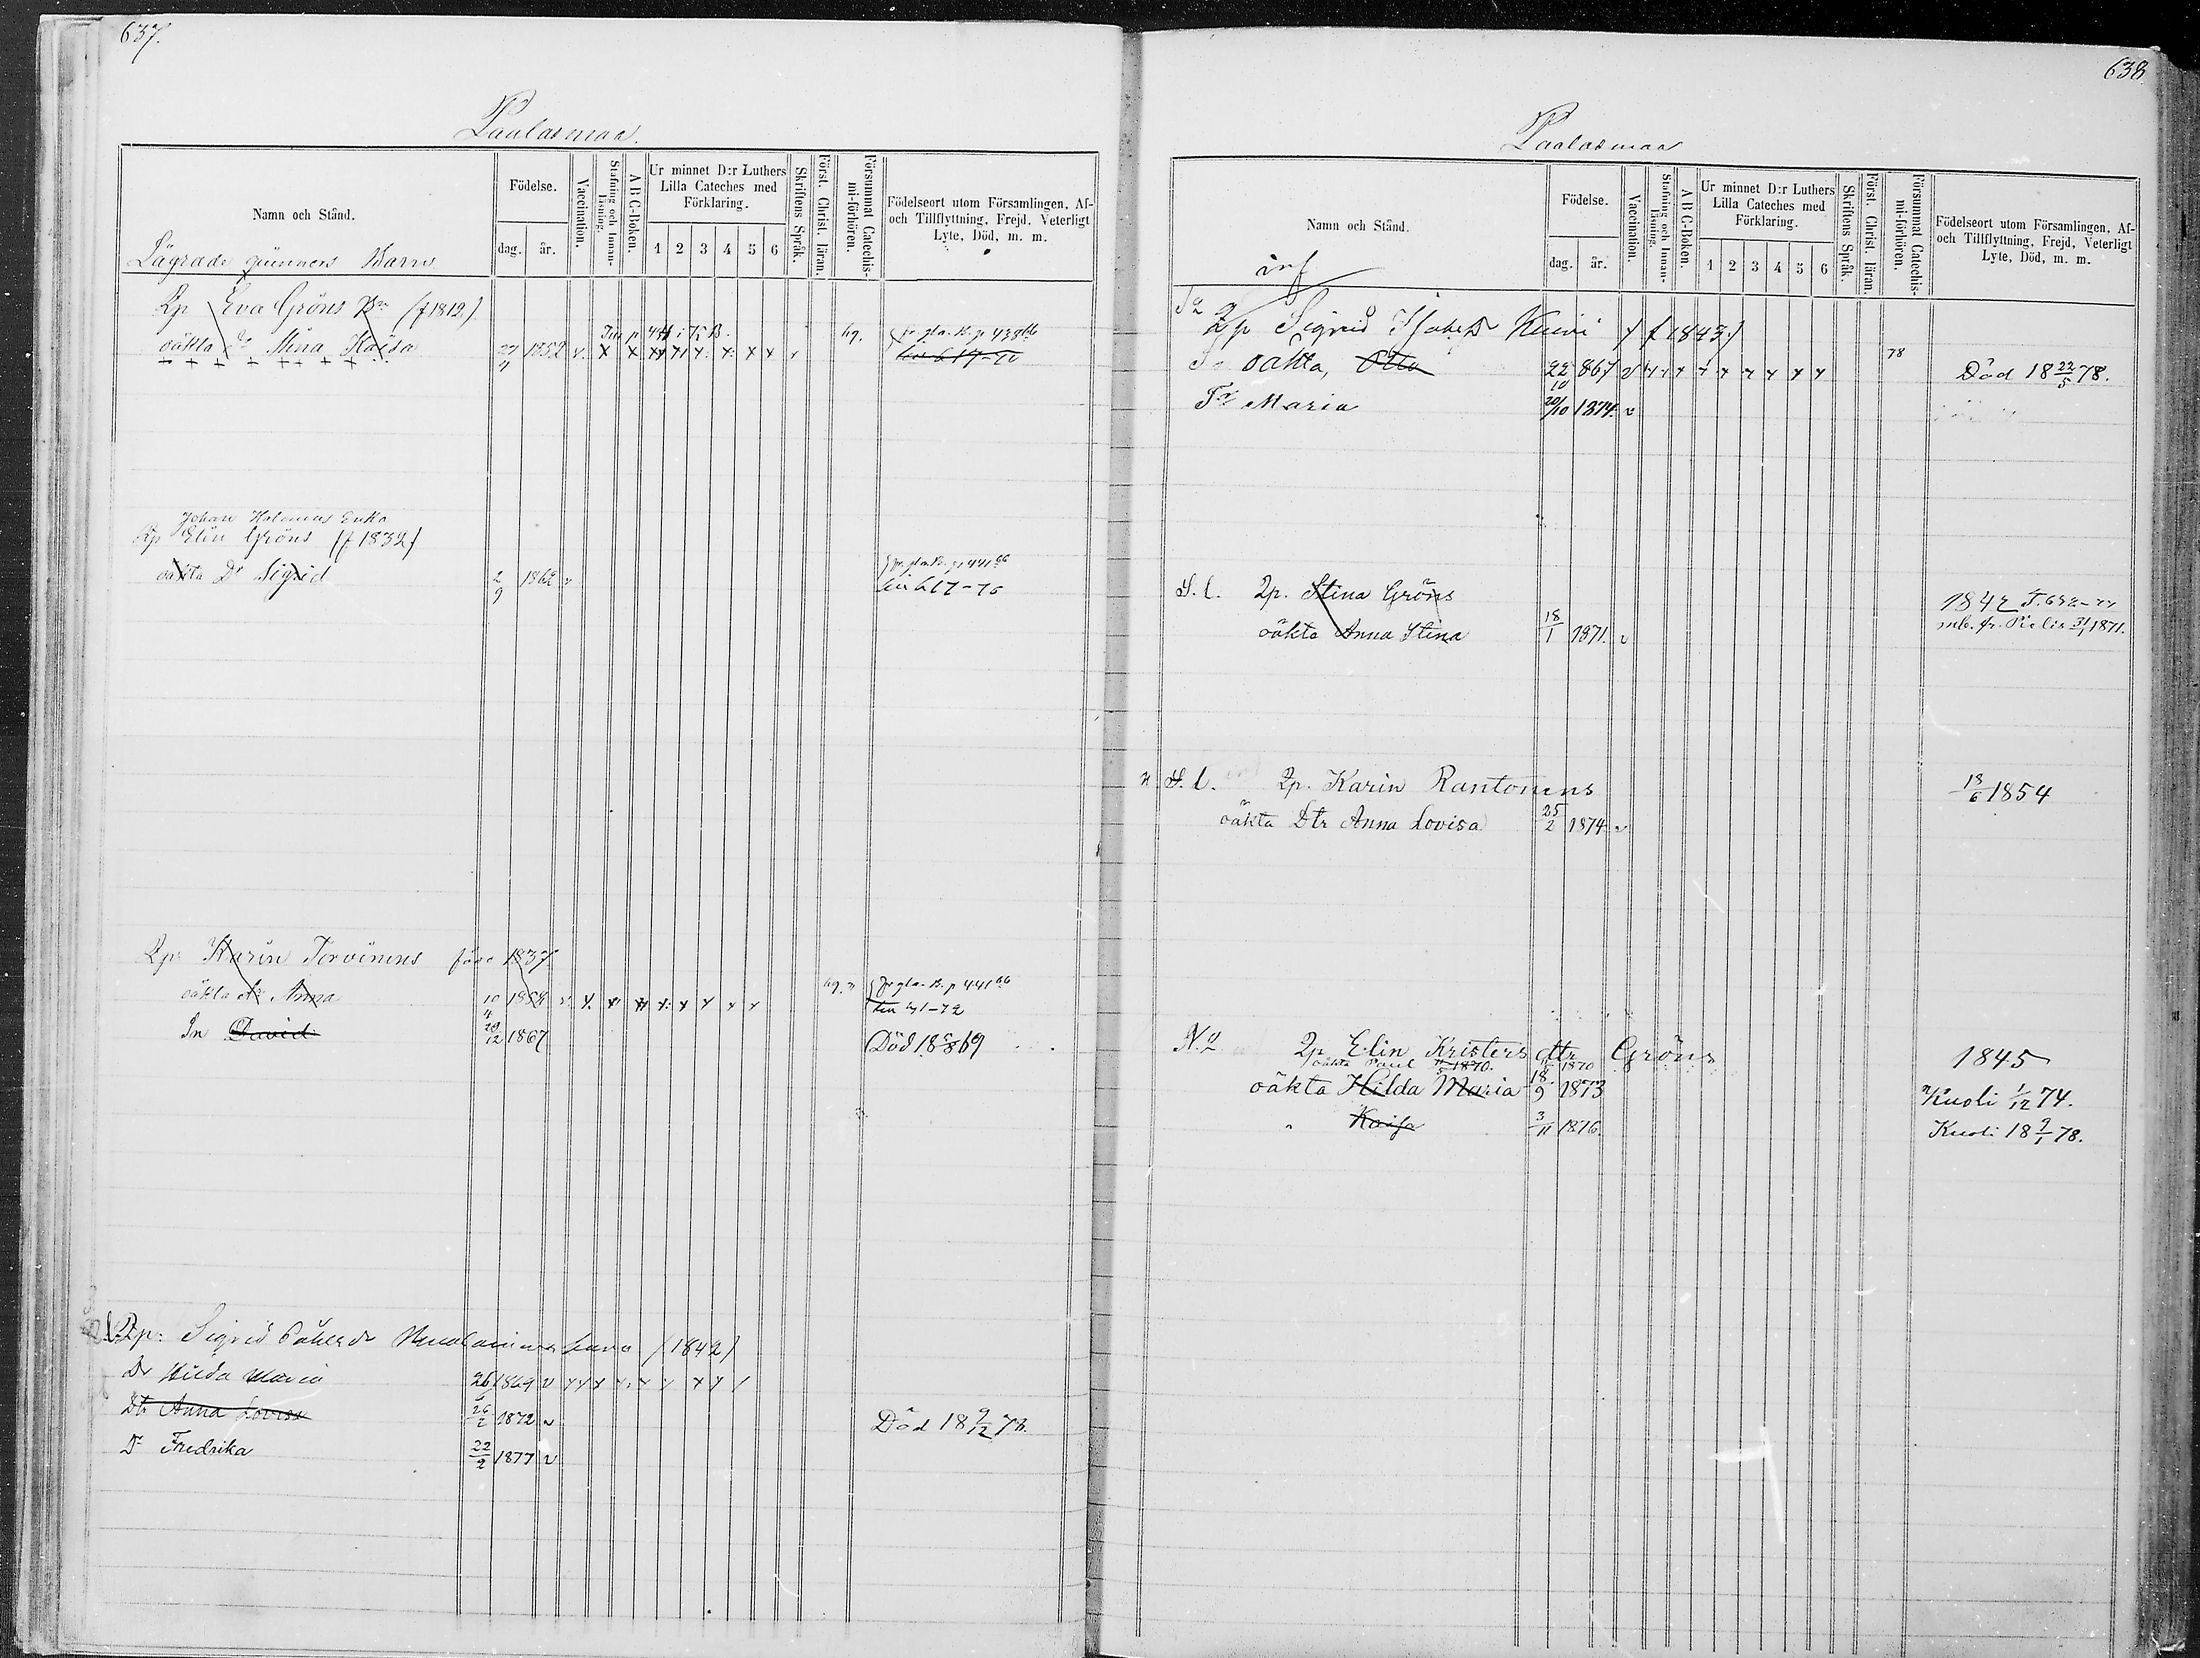 637.
Paalasmaa.
Namn och Stånd.
Födelse.
dag. år.
Vaccination.
Stafning och Innanläsning.
A B C-Boken.
Ur minnet D:r Luthers Lilla Cateches med Förklaring.
1 2 3 4 5 6
Skriftens Språk.
Först. Christ. läran.
Försummat Catechismi-förhören.
Födelseort utom Församlingen, Af- och Tillflyttning, Frejd, Veterligt Lyte, Död, m. m.
Lägrade qvinnors Barn
Qp Eva Gröns (f 1819)
oäkta Dr Stina Kaisa 1852 69.
Johan Holopains Enka
Qp Elin Gröns (f 1832)
oäkta Dr Sigrid 2/9 1862 v
Qp. Karin Torvinens född 1837
oäkta Dr Anna 10/4 1858 69.
Sn David 29/12 1867 Död 18 69
Qp. Sigrid (1842)
Dr Hilda Maria 26/6 1869 v
Dtr Anna Lovisa 26/2 1872 v Död 18 9/12 78.
Dr Fredrika 22/2 1877 v
638
Paalasmaa
Namn och Stånd.
Födelse.
dag. år.
Vaccination.
Stafning och Innanläsning.
A B C-Boken.
Ur minnet D:r Luthers Lilla Cateches med Förklaring.
1 2 3 4 5 6
Skriftens Språk.
Först. Christ. läran.
Försummat Catechismi-förhören.
Födelseort utom Församlingen, Af- och Tillflyttning, Frejd, Veterligt Lyte, Död, m. m.
inf
Qp Sigrid (f 1843)
oäkta, Otto 22/10 867 v 78 Död 18 22/5 78.
Dr Maria 20/10 1874. v
S. l. Qp. Stina Gröns 1842
oäkta Anna Stina 18/1 1871. v 1871.
S. l. Qp. Karin Rantonens 18/6 1854
oäkta Dtr Anna Lovisa 25/2 1874 v
Qp Elin Kristersdtr Gröns 1845
oäkta Paul 1870. 1870
oäkta Hilda Maria 18/9 1873 Kuoli 1/12 74.
" Kaisa 3/11 1876. Kuoli 18 9/1 78.